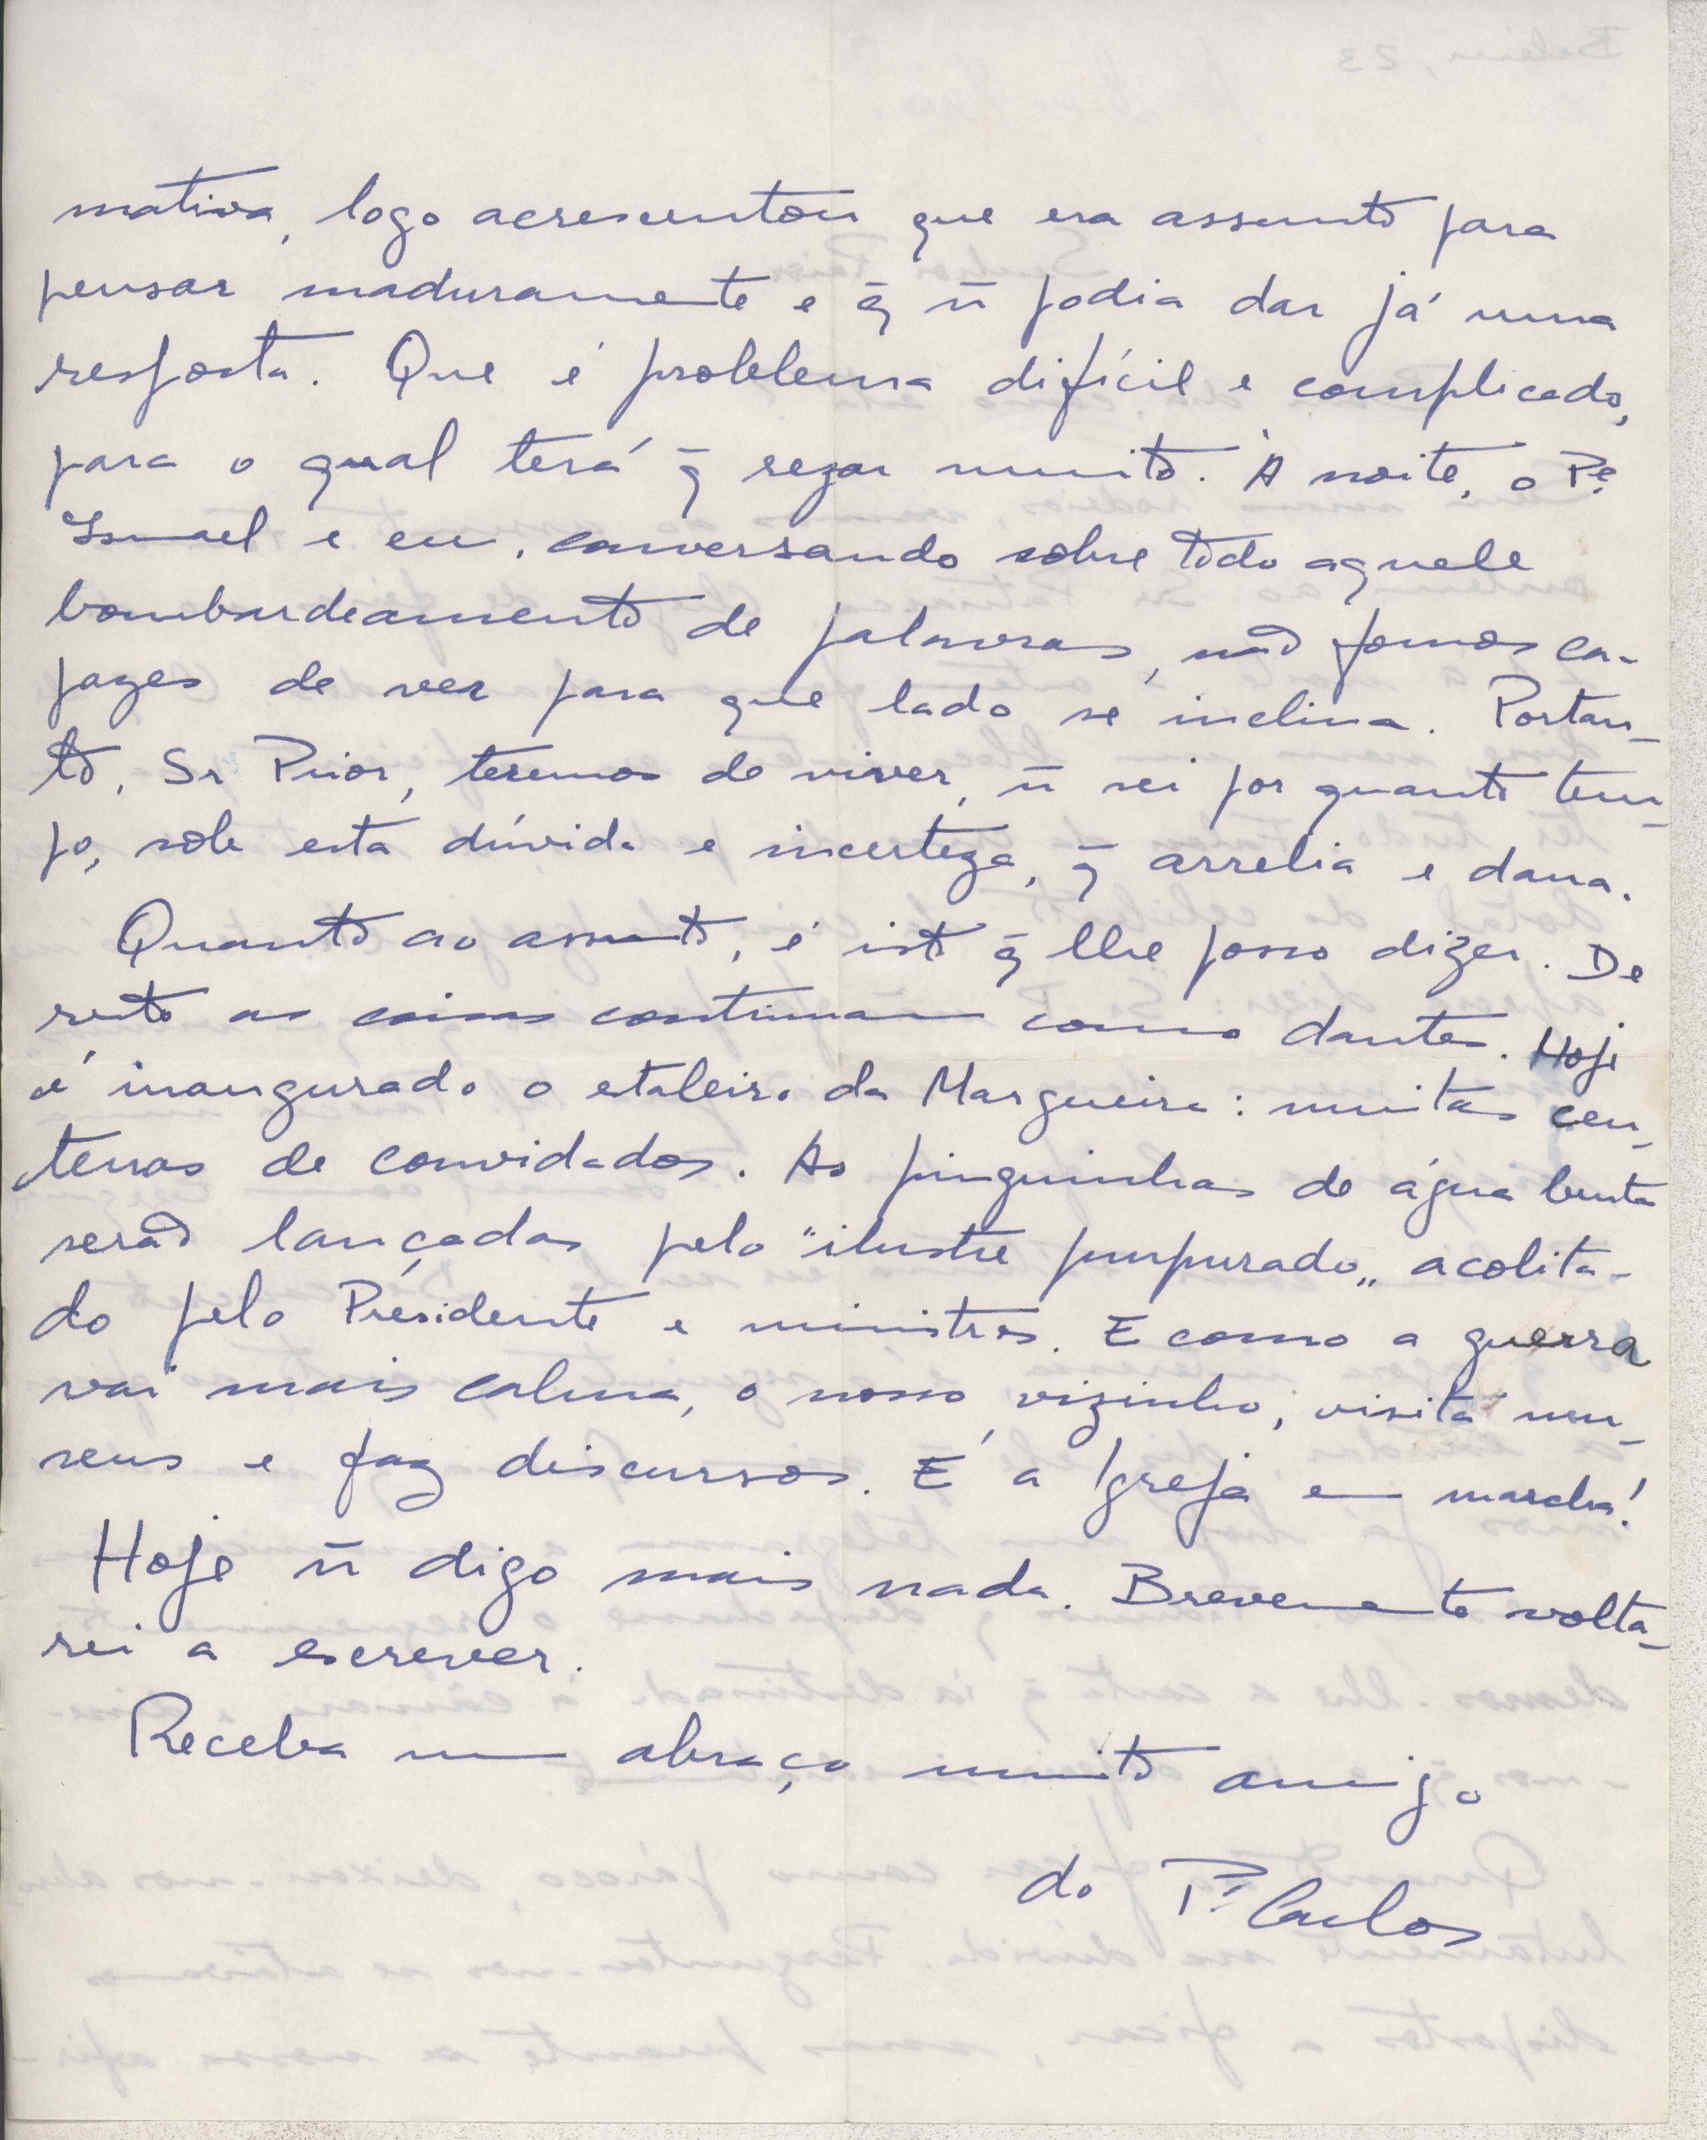 mativa, logo acrescentou que era assunto para
pensar maduramente e q̄ ñ podia dar já uma
resposta. Que é problema difícil e complicado,
para o qual terá q̄ rezar muito. À noite, o Pe.
Ismael e eu, conversando sobre todo aquele
bombardeamento de palavras, não fomos ca-
pazes de ver para que lado se inclina. Portan-
to, Sr Prior, teremos de viver, ñ sei por quanto tem-
po, sob esta dúvida e incerteza, q̄ arrelia e dana.
Quanto ao assunto, é isto q̄ lhe posso dizer. De
resto as coisas continuam como dantes. Hoje
é inaugurado o estaleiro da Margueira: muitas cen-
tenas de convidados. As pinguinhas de água benta
serão lançadas pelo "ilustre purpurado„ acolita-
do pelo Presidente e ministros. E como a guerra
vai mais calma, o nosso vizinho, visita mu-
seus e faz discursos. É a Igreja em marcha!
Hoje ñ digo mais nada. Brevemente volta-
rei a escrever.
Receba um abraço muito amigo
do Pe. Carlos